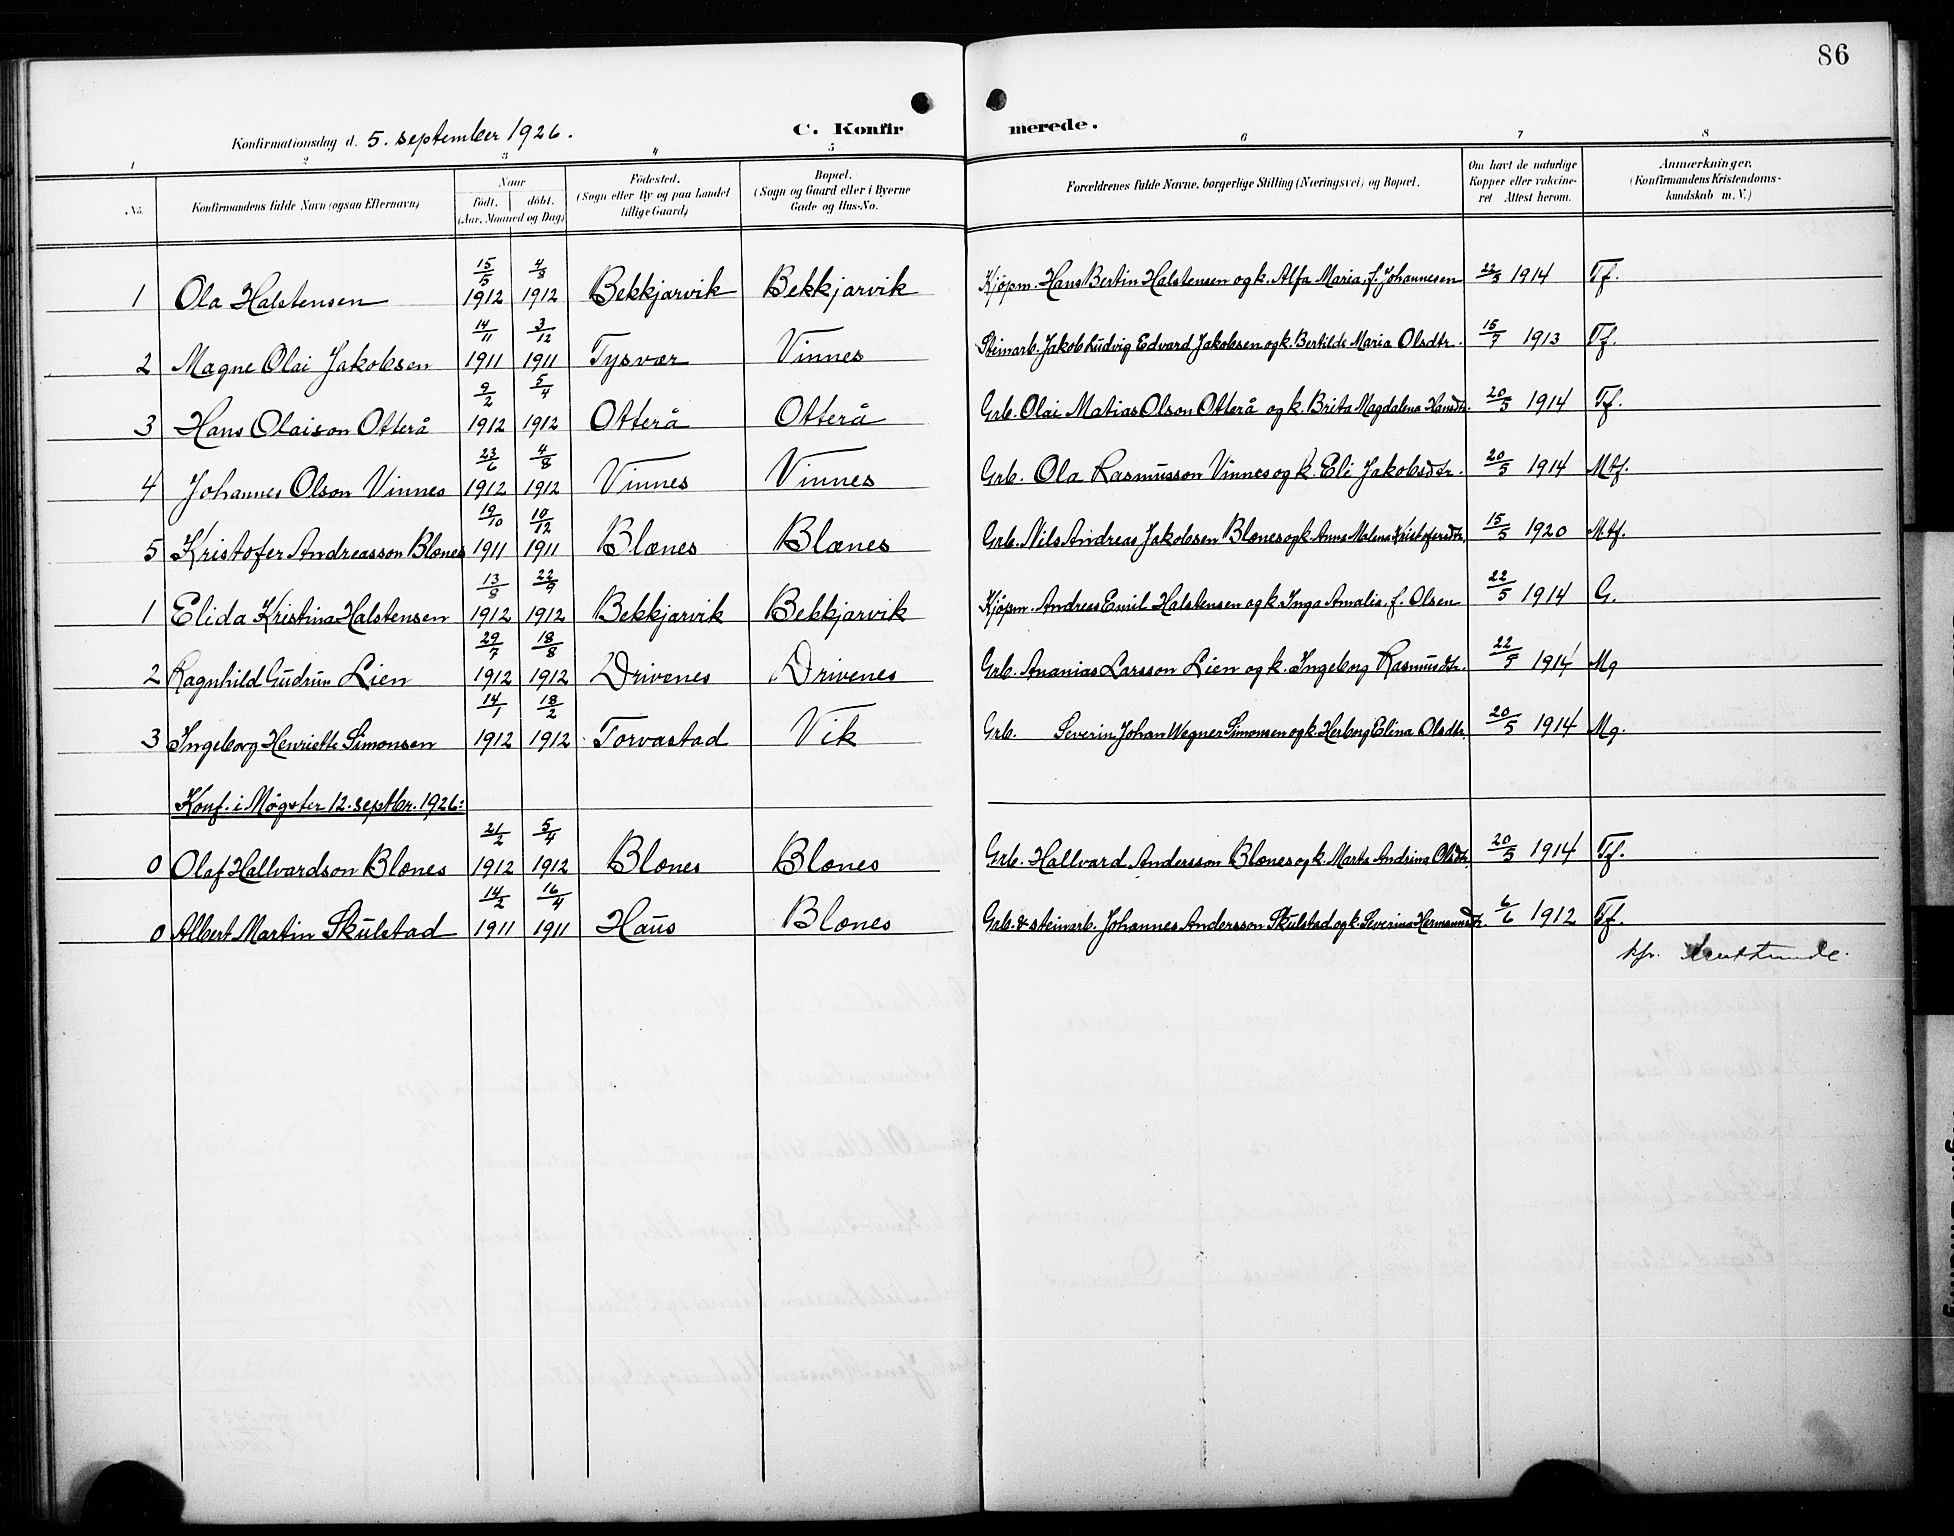 86
Konfirmationsdag d. 5. september 1926. C. Konfirmerede.
1 2 3 4 5 6 7 8
No. Konfirmandens fulde Navn (ogsaa Efternavn) Naar Født. døbt. (Aar, Maaned og Dag) Fødested. (Sogn eller By og paa Landet tillige Gaard) Bopæl. (Sogn og Gaard eller i Byerne Gade og Hus-No. Forældrenes fulde Navne, borgerlige Stilling (Næringsvei) og Bopæl. Om havt de naturlige Kopper eller vakcineret Attest herom. Anmærkninger, (Konfirmandens Kristendomskundskab m. V.)
1 Ola Halstensen 15/5 1912 4/8 1912 Bekkjarvik Bekkjarvik Kjøpm. Hans Bertin Halstensen og k. Alfa Maria f. Johannesen 22/5 1914 Tf.
2 Magne Olai Jakobsen 14/11 1911 3/12 1911 Tysvær Vinnes Steinarb. Jakob Ludvig Edvard Jakobsen og k. Bertilde Maria Olsdtr. 15/7 1913 Tf.
3 Hans Olaison Otterå 9/2 1912 5/4 1912 Otterå Otterå Grb. Olai Matias Olson Otterå og k. Brita Magdalena Hansdtr. 20/5 1914 Tf.
4 Johannes Olson Vinnes 23/6 1912 4/8 1912 Vinnes Vinnes Grb. Ola Rasmusson Vinnes og k. Eli Jakobsdtr. 20/5 1914 Mtf.
5 Kristofer Andreasson Blænes 19/10 1911 10/12 1911 Blænes Blænes Grb. Nils Andreas Jakobsen Blænes og k. Anna Malena Kristofersdtr. 15/5 1920 Mtf.
1 Elida Kristina Halstensen 13/8 1912 22/9 1912 Bekkjarvik Bekkjarvik Kjøpm. Andreas Emil Halstensen og k. Inga Amalia f. Olsen 22/5 1914 G.
2 Ragnhild Gudrun Lien 29/7 1912 18/8 1912 Drivenes Drivenes Grb. Ananias Larsson Lien og k. Ingeborg Rasmusdtr. 22/5 1914 Mg
3 Ingeborg Henriette Simonsen 14/1 1912 18/2 1912 Torvastad Vik Grb. Severin Johan Wegner Simonsen og k. Herborg Elina Olsdtr. 20/5 1914 Mg.
Konf. i Møgster 12. septbr. 1926:
0 Olaf Hallvardson Blænes 21/2 1912 5/4 1912 Blænes Blænes Grb. Hallvard Andersson Blænes og k. Marta Andrina Olsdtr. 20/5 1914 Tf.
0 Albert Martin Skulstad 14/2 1911 16/4 1911 Haus Blænes Grb. & steinarb. Johannes Andersson Skulstad og k. Severina Hermannsdtr. 6/6 1912 Tf.
kfr.